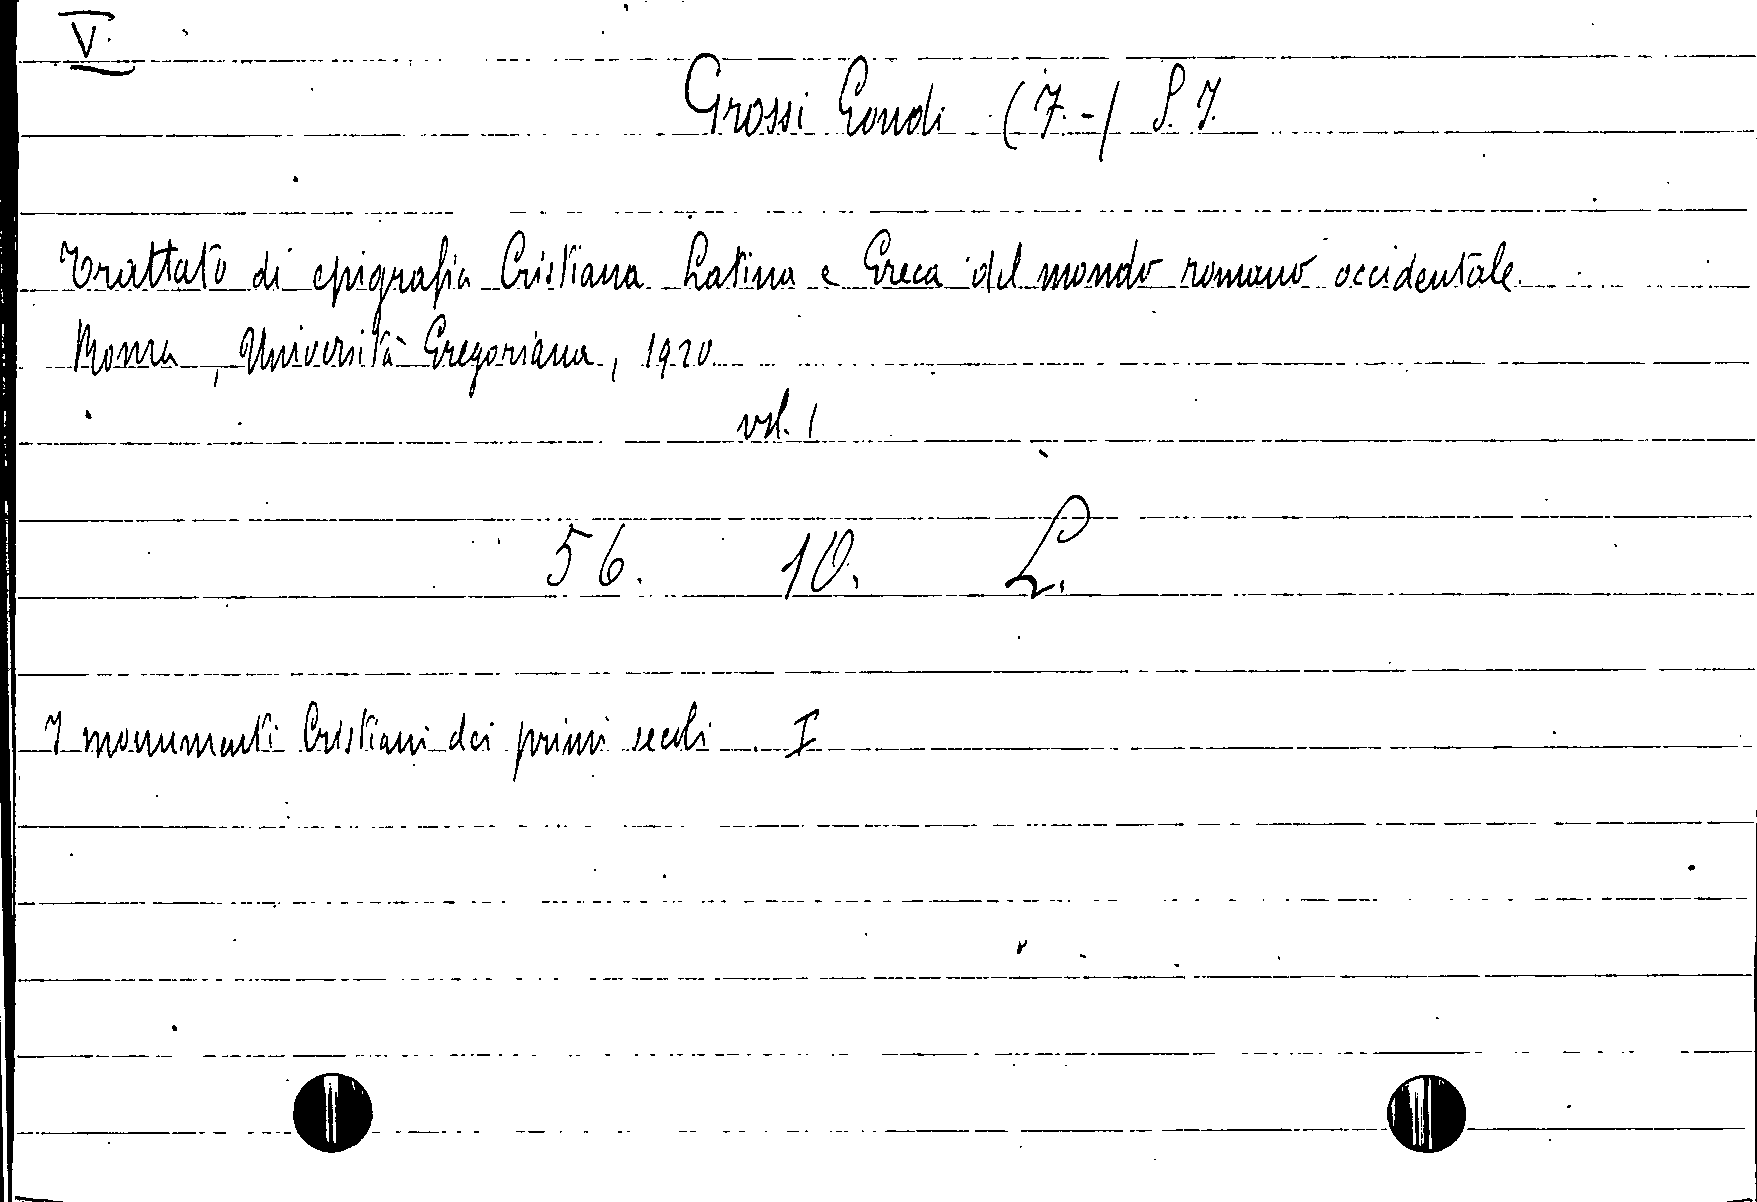 V.
Grossi Gondi (F.-) S. J.
Trattato di epigrafia Cristiana Latina e Greca del mondo romano occidentale.
Roma, Università Gregoriana, 1920
vol. 1
56. 10. L.
I monumenti Cristiani dei primi secoli I